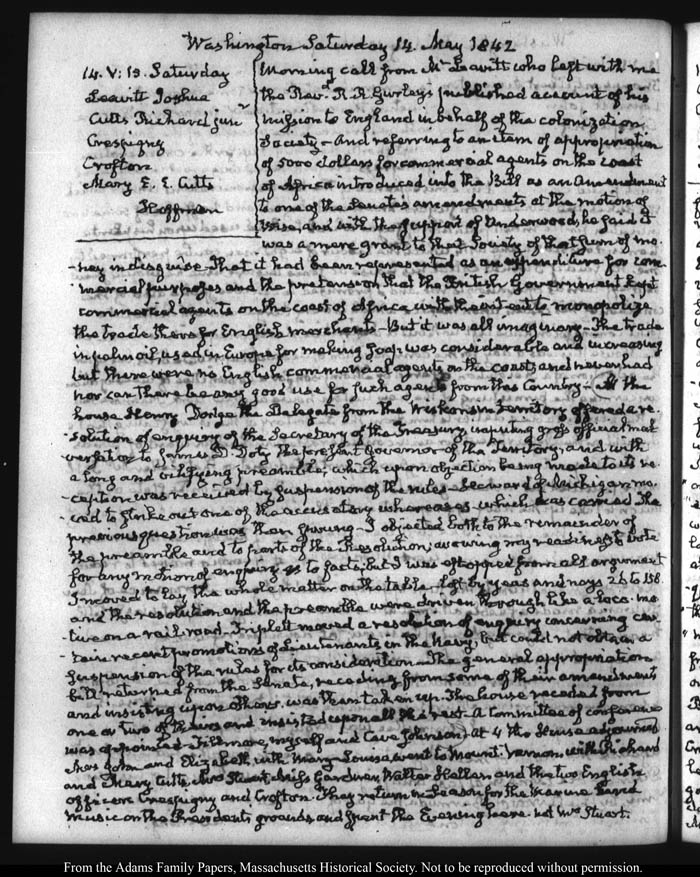 Washington Saturday 14. May 1842
14. V: 15. Saturday
Leavitt Joshua
Cutts Richard junr
Crespigny
Crofton
Mary E. E. Cutts
Hoffman
Morning call from Mr Leavitt who left with me
the Revd R. R. Gurley's published account of his
mission to England in behalf of the colonization
Society - And referring to an item of appropriation
of 5000 dollars for commercial agents on the coast
of Africa introduced into the Bill as an amendment
to one of the Senate's amendments at the motion of
Wise, and with the support of Underwood, he said it
was a mere grant to that Society of that sum of mo-
-ney in disguise. That it had been represented as an expenditure for com-
-mercial purposes and the pretension that the British Government kept
commercial agents on the coast of Africa with the intent to monopolize
the trade there for English merchants - But it was all imaginary - The trade
in palm oil, used in Europe for making soap was considerable and increasing
but there were no English commercial agents on the coast, and never had
nor can there be any good use for such agents from this Country - At the
house Henry Dodge the Delegate from the Wiskonsin Territory offered a re-
-solution of enquiry of the Secretary of the Treasury, imputing gross official mal-
-versation to James D. Doty the present Governor of the Territory, and with
a long and vilifying preamble; which upon objection being made to its re-
-ception was received by suspension of the rules - Howard of Michigan mo-
-ved to strike out one of the accusatory whereases - which was carried The
previous question was then sprung - I objected both to the remainder of
the preamble and to parts of the Resolution; avowing my readiness to vote
for any motion of enquiry as to facts, but I was estopped from all argument
I moved to lay the whole matter on the table. lost by yeas and nays 26 to 158.
and the resolution and the preamble were driven through like a loco-mo-
-tive on a rail-road. Triplett moved a resolution of enquiry concerning cer-
-tain recent promotions of Lieutenants in the Navy, but could not obtain a
suspension of the rules for its consideration - The general appropriation
bill returned from the Senate, receding from some of their amendments
and insisting upon others was then taken up. The house receded from
one or two of theirs and insisted upon all the rest - A Committee of conference
was appointed - Fillmore, myself and Cave Johnson; At 4 the House adjourned
Mrs John and Elizabeth, with Mary-Louisa went to Mount-Vernon with Richard
and Mary Cutts, Mrs Stuart, Miss Gardiner, Walter Hellen and the two English
officers Crespigny and Crofton. They return in Season for the Marine Band
music on the President's grounds and spent the Evening here. not Mrs Stuart.
From the Adams Family Papers, Massachusetts Historical Society. Not to be reproduced without permission.